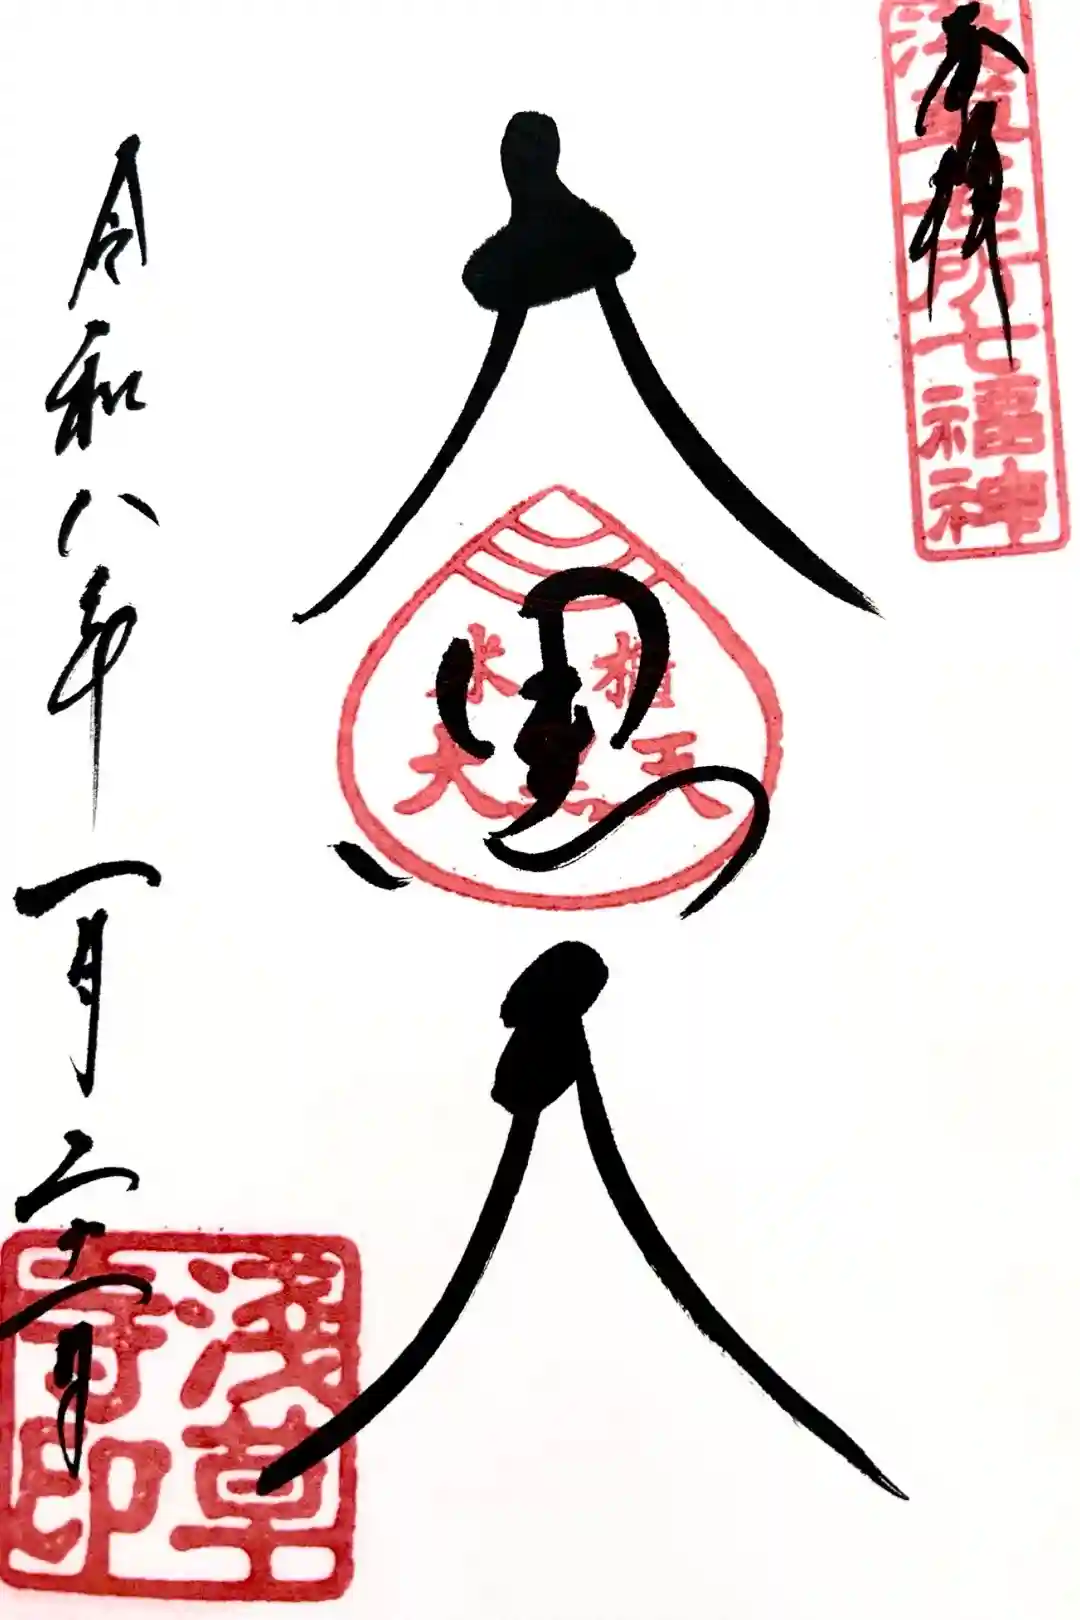 奉拝
浅草名所七福神
大黒天
米櫃
大黒天
令和八年一月二十一日
浅草寺印